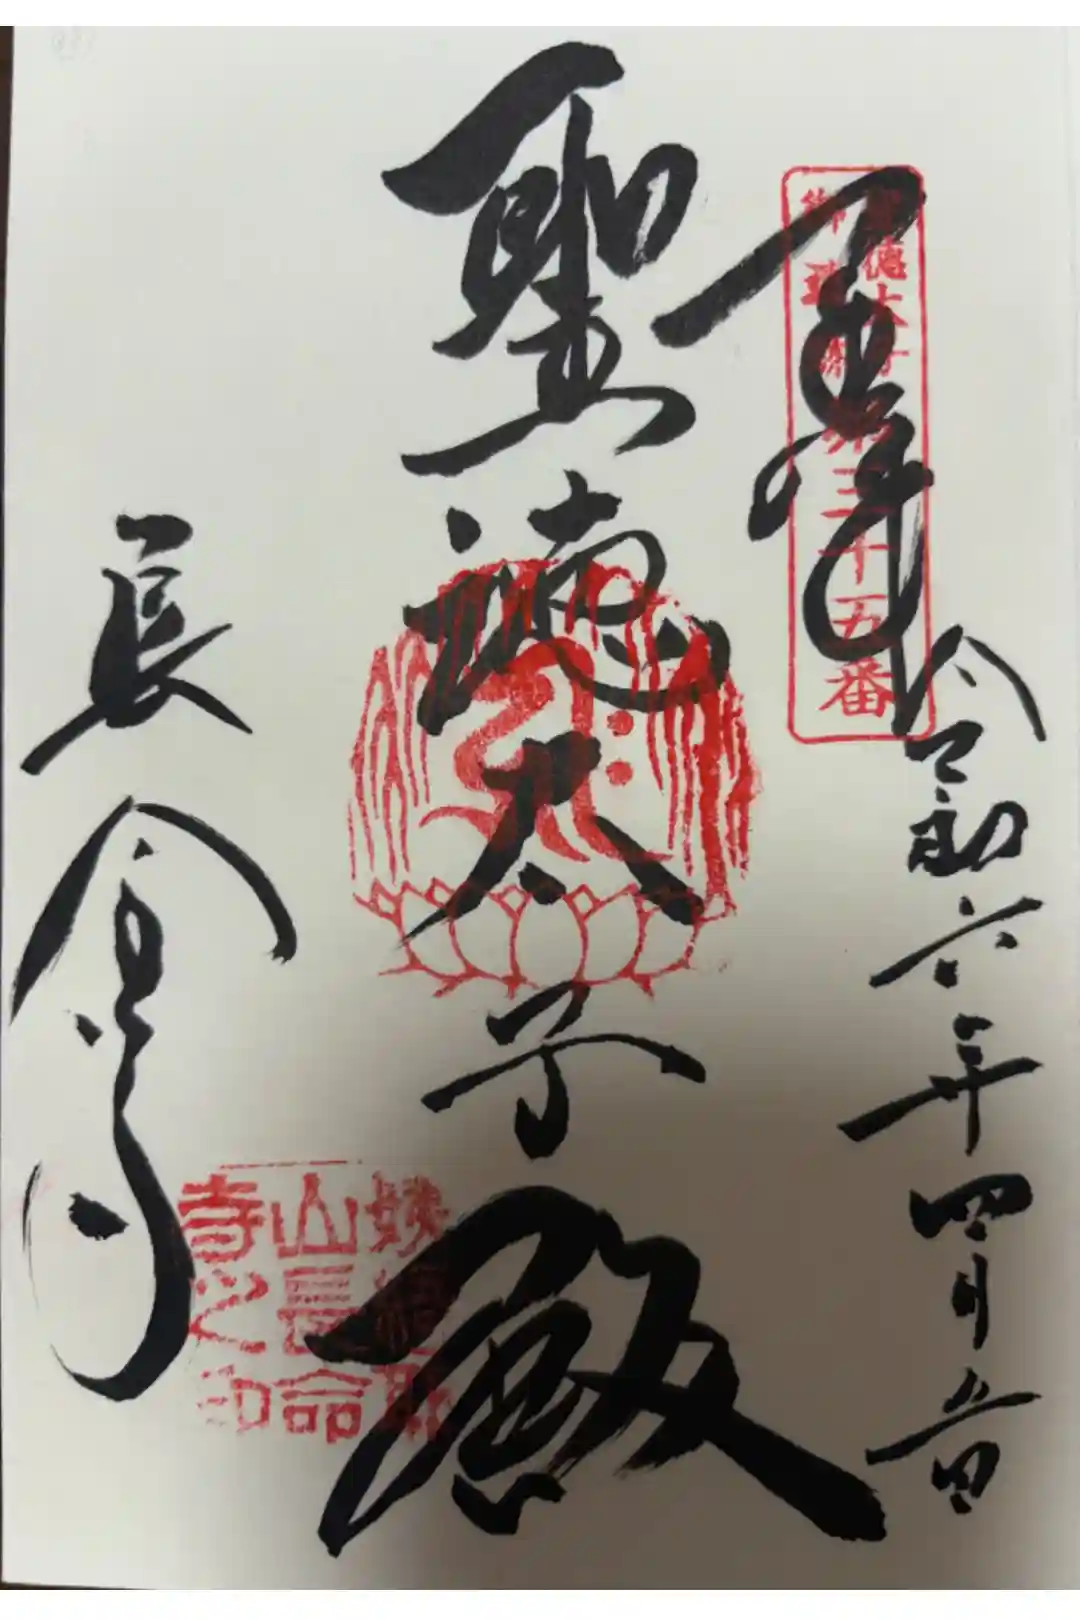 奉拝
聖徳太子
御遺跡
第三十五番
令和六年四月五日
聖徳太子殿
長命寺
姨綺耶
山長命
寺之印